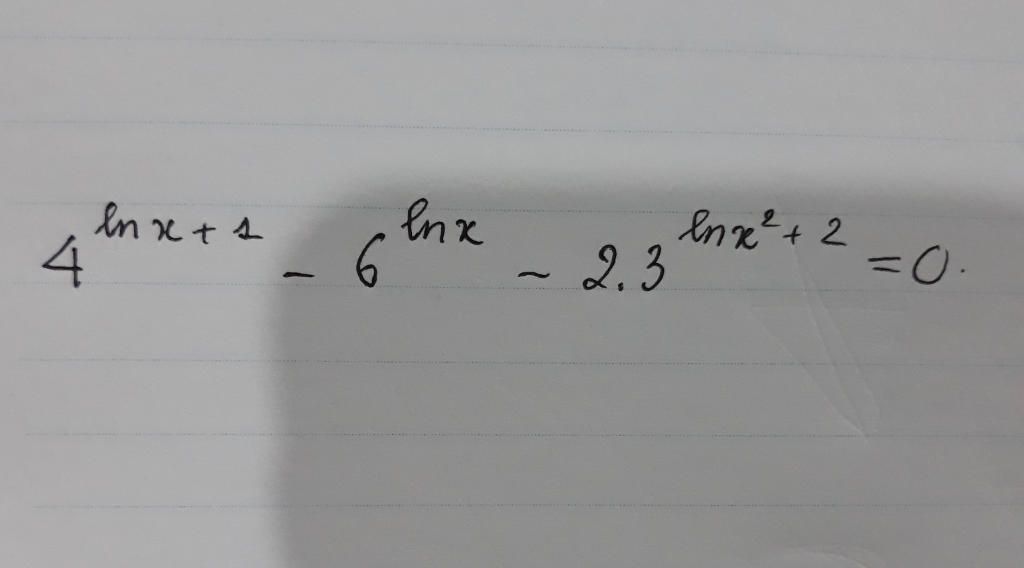 4^{ln x + 1} - 6^{ln x} - 2.3^{ln x² + 2} = 0.